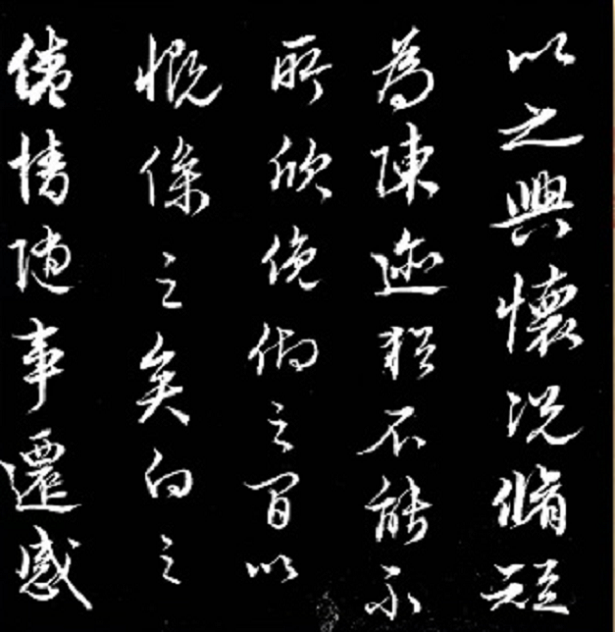 倦情隨事遷感
慨係之矣向之
所欣俛仰之間以
為陳迹猶不能不
以之興懷況脩短